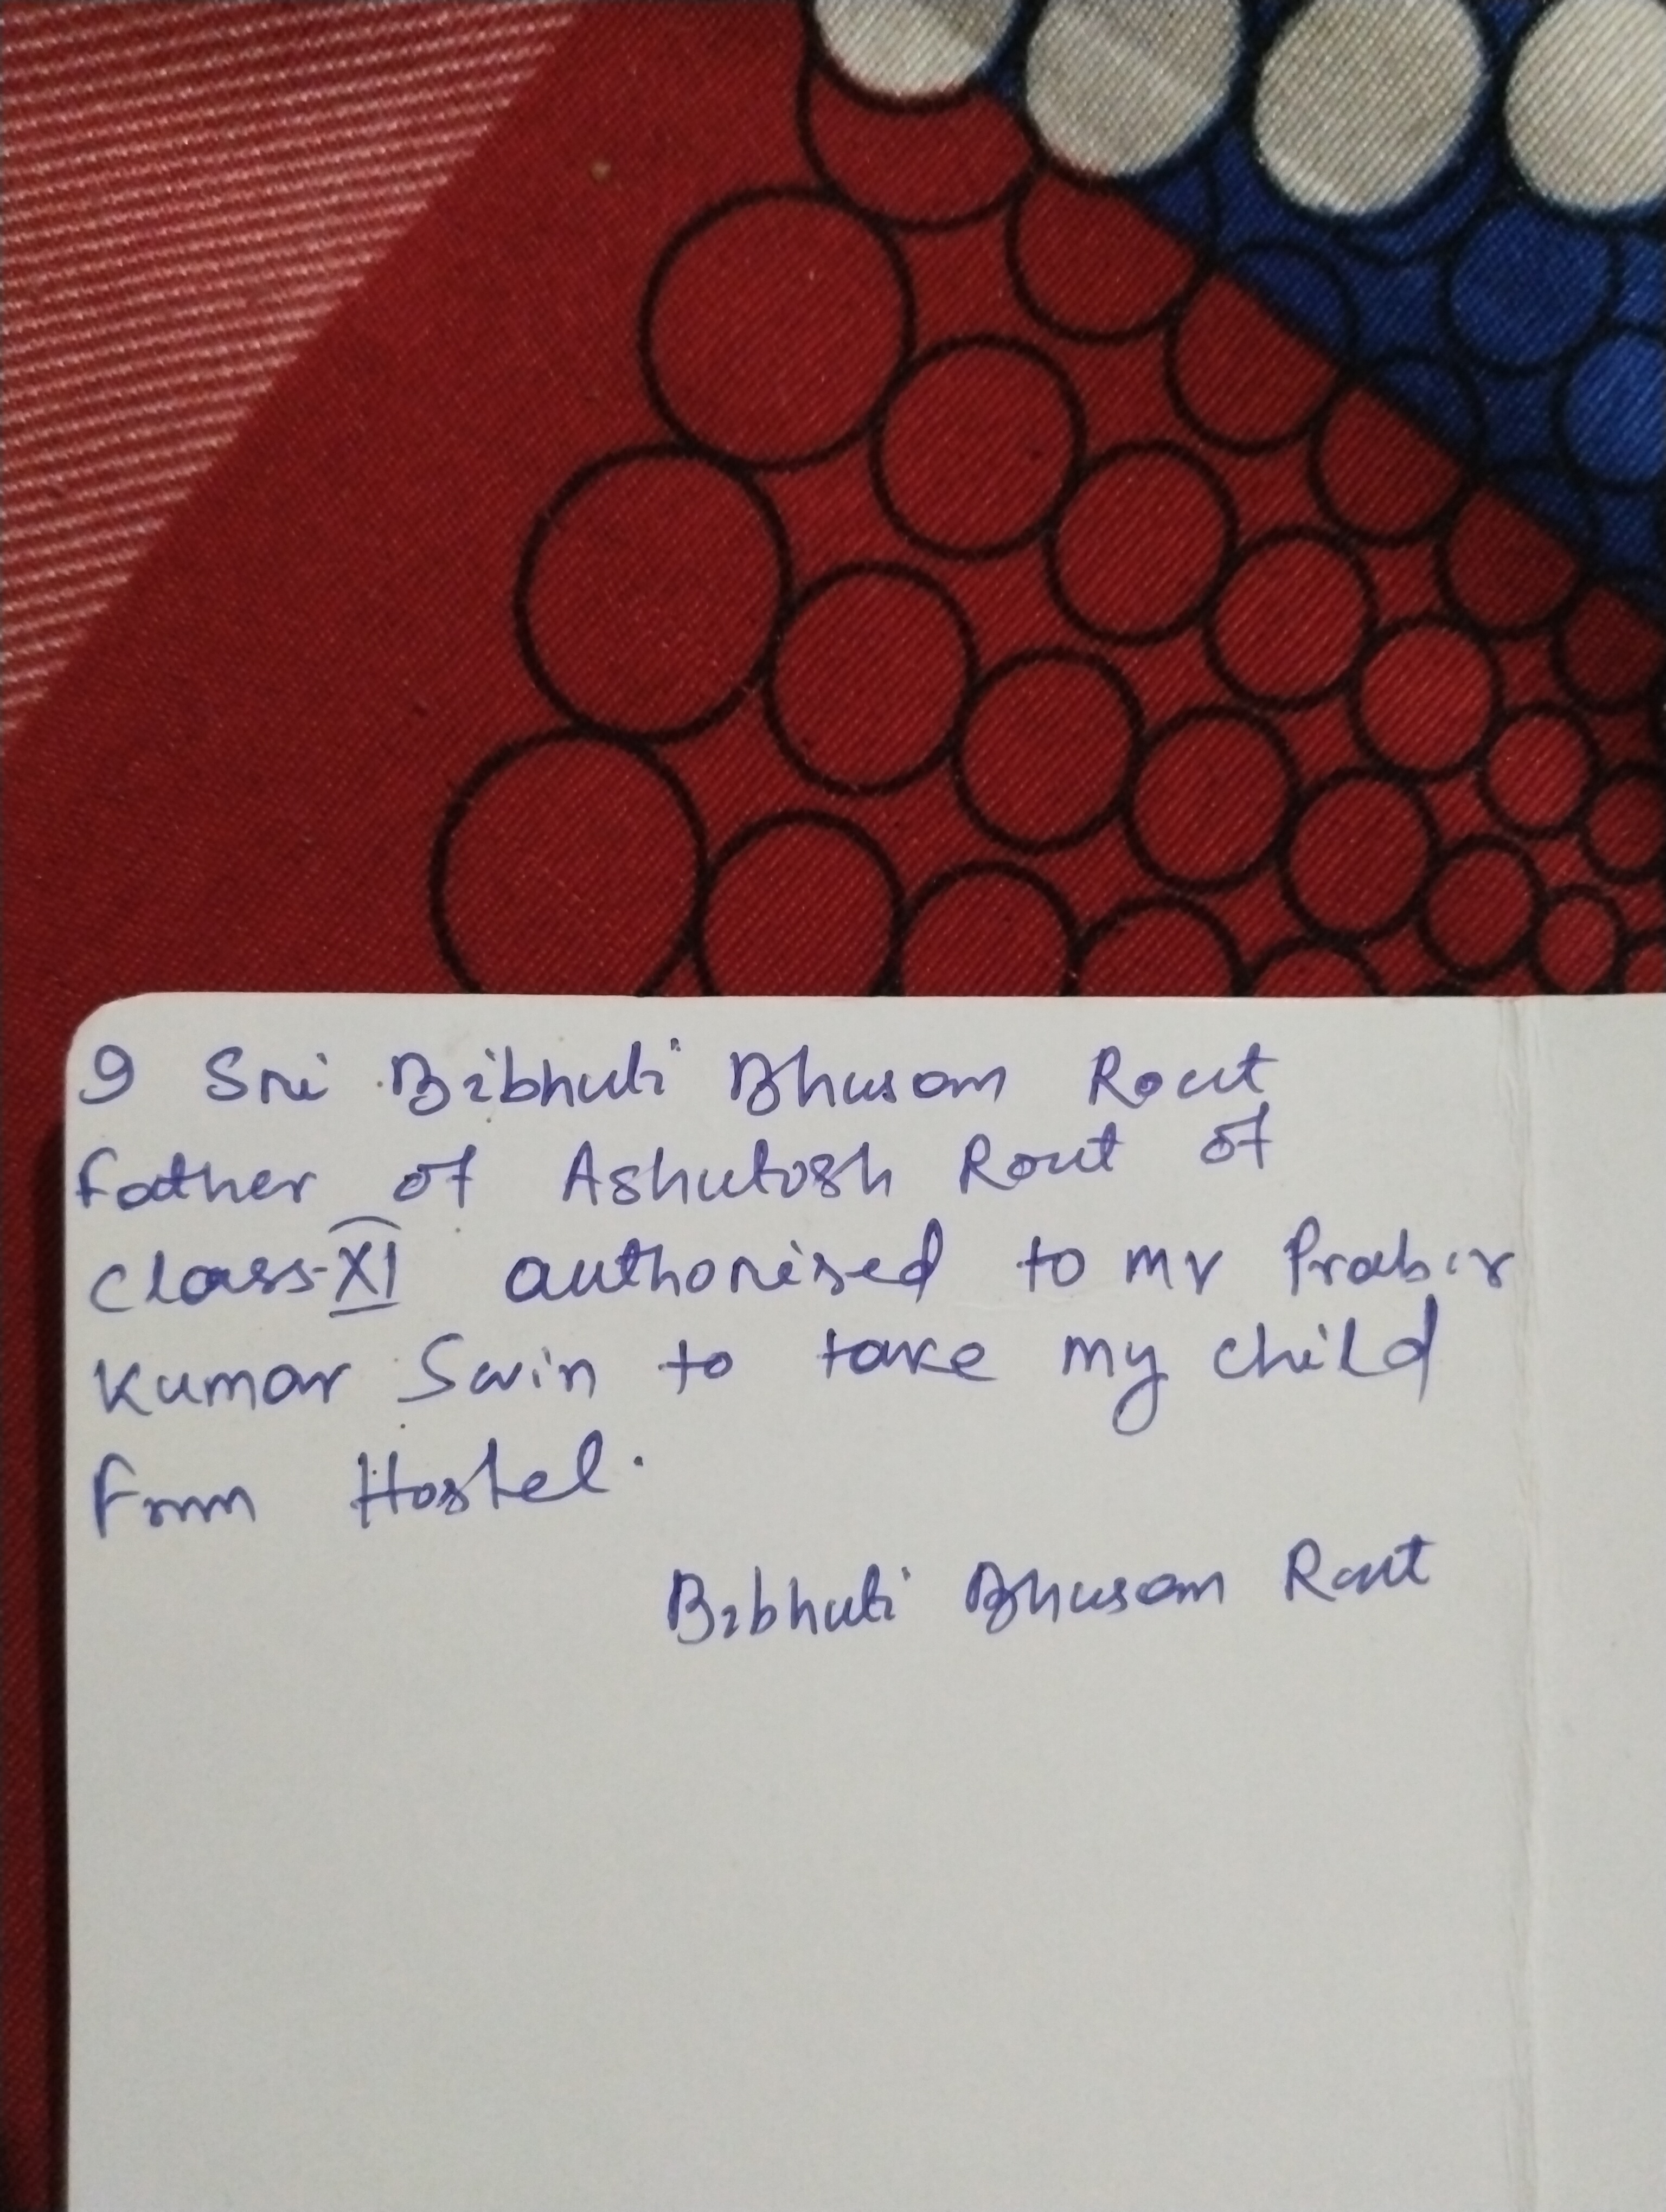 I Sri Bibhuti Bhusan Rout
Father of Ashutosh Rout of
class-XI authorised to Mr Prabir
Kumar Swin to take my child
From Hostel.
Bibhuti Bhusan Rout